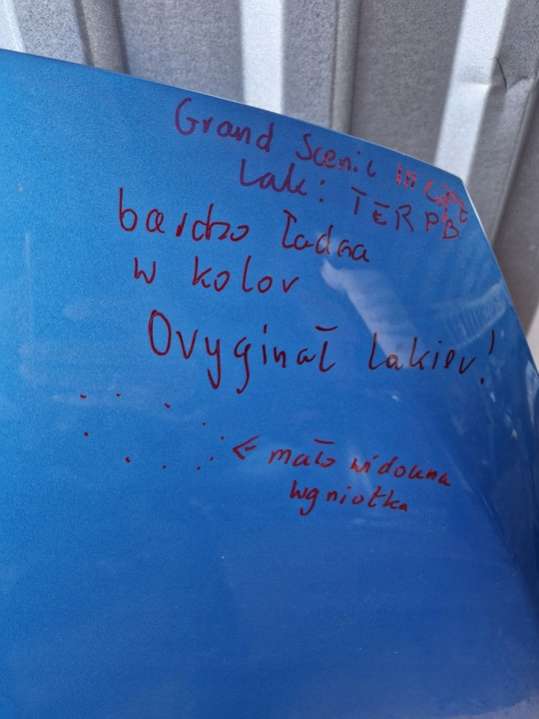 Grand Scenic III
Lak: TERPB
bardzo ładna
w kolor
Oryginał lakier!
← mało widoczna
wgniotka